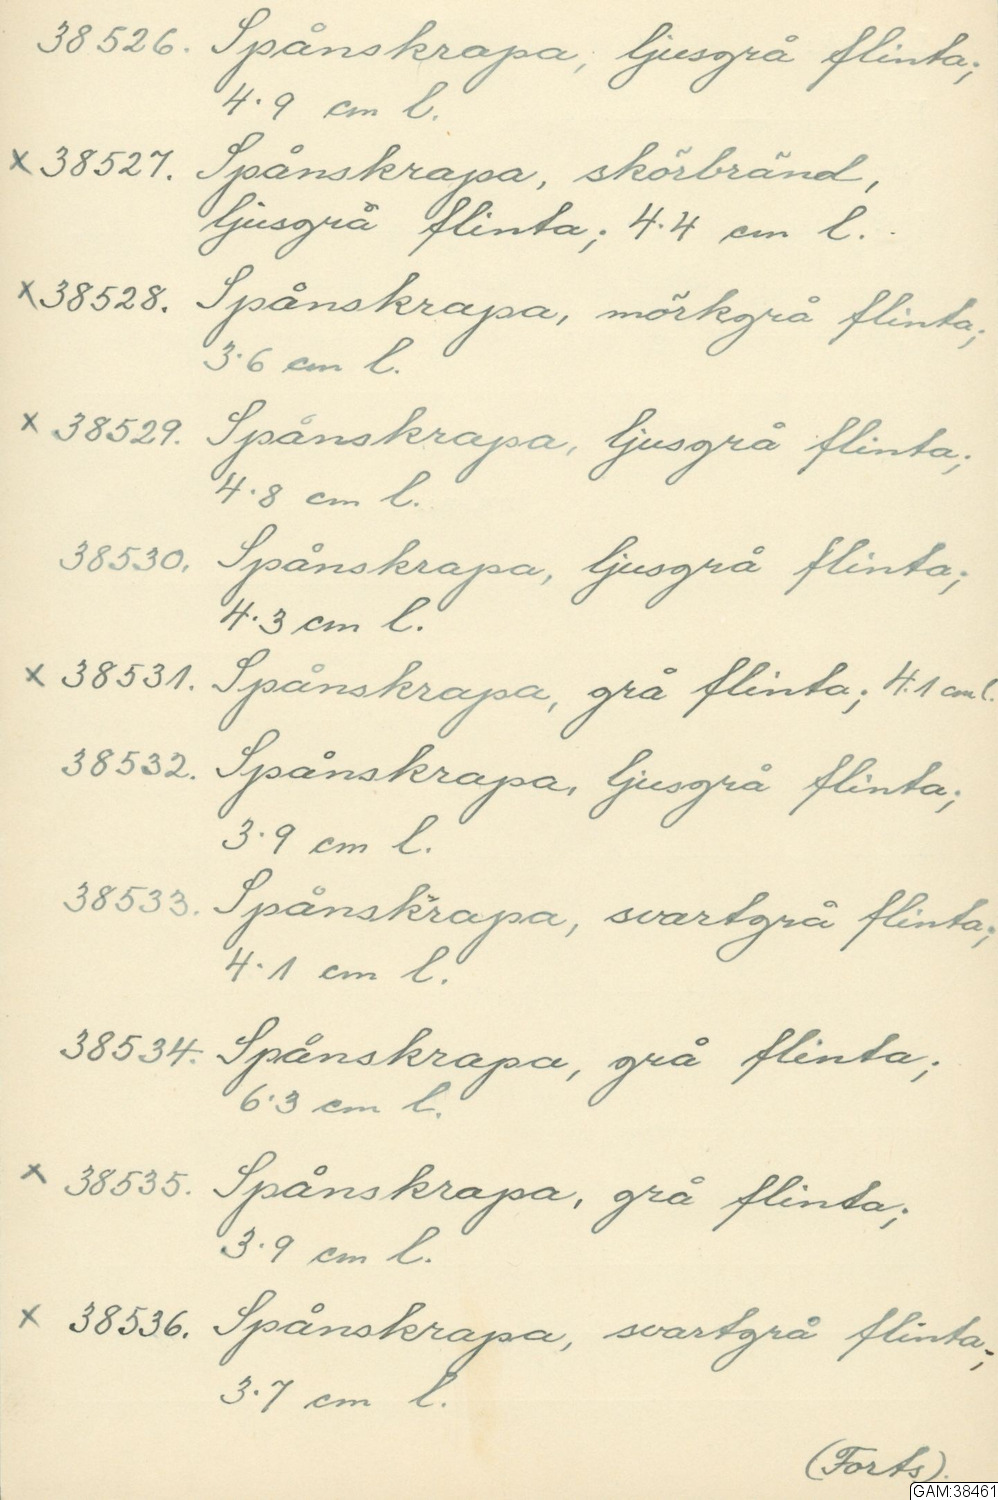 38526. Spånskrapa, ljusgrå flinta;
4.9 cm l.
x 38527. Spånskrapa, skörbränd,
ljusgrå flinta; 4.4 cm l.
x 38528. Spånskrapa, mörkgrå flinta;
3.6 cm l.
x 38529. Spånskrapa, ljusgrå flinta;
4.8 cm l.
38530. Spånskrapa, ljusgrå flinta;
4.3 cm l.
x 38531. Spånskrapa, grå flinta; 4.1 cm l.
38532. Spånskrapa, ljusgrå flinta;
3.9 cm l.
38533. Spånskrapa, svartgrå flinta;
4.1 cm l.
38534. Spånskrapa, grå flinta;
6.3 cm l.
x 38535. Spånskrapa, grå flinta;
3.9 cm l.
x 38536. Spånskrapa, svartgrå flinta;
3.7 cm l.
(Forts).
GAM:38461